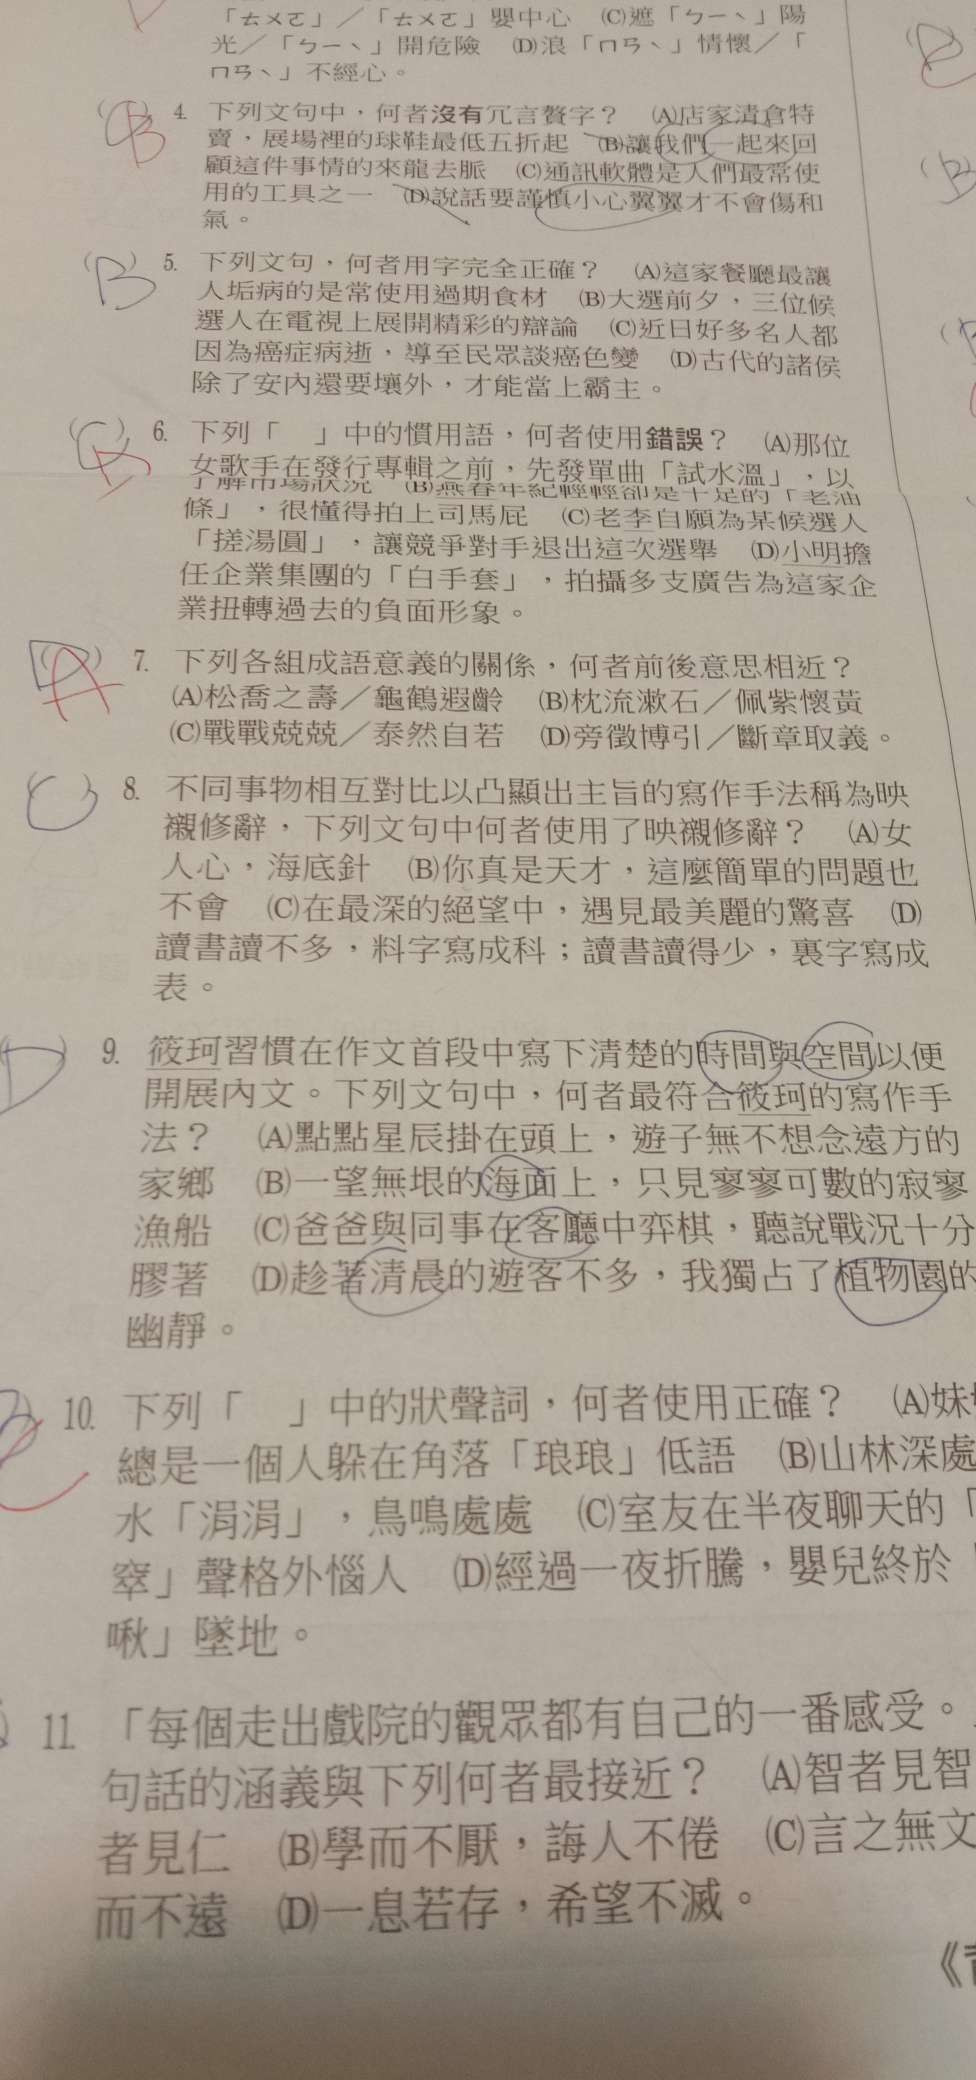 「ㄊㄨㄛ」／「ㄊㄨㄛ」嬰中心　(C)遮「ㄅㄧˋ」陽
光／「ㄅㄧˋ」開危險　(D)浪「ㄇㄢˋ」情懷／「
ㄇㄢˋ」不經心。
(B) 4. 下列文句中，何者沒有冗言贅字？　(A)店家清倉特
賣，展場裡的球鞋最低五折起　(B)讓我們一起來回
顧這件事情的來龍去脈　(C)通訊軟體是人們最常使
用的工具之一　(D)說話要謹慎小心翼翼才不會傷和
氣。
(B) 5. 下列文句，何者用字完全正確？　(A)這家餐廳最讓
人垢病的是常使用過期食材　(B)大選前夕，三位候
選人在電視上展開精彩的辯論　(C)近日好多名人都
因為癌症病逝，導至民眾談癌色變　(D)古代的諸侯
除了安內還要壤外，才能當上霸主。
6. 下列「　」中的慣用語，何者使用錯誤？　(A)那位
女歌手在發行專輯之前，先發單曲「試水溫」，以
了解市場狀況　(B)燕春年紀輕輕卻是十足的「老油
條」，很懂得拍上司馬屁　(C)老李自願為某候選人
「搓湯圓」，讓競爭對手退出這次選舉　(D)小明擔
任企業集團的「白手套」，拍攝多支廣告為這家企
業扭轉過去的負面形象。
(A) 7. 下列各組成語意義的關係，何者前後意思相近？
(A)松喬之壽／龜鶴遐齡　(B)枕流漱石／佩紫懷黃
(C)戰戰兢兢／泰然自若　(D)旁徵博引／斷章取義。
(C) 8. 不同事物相互對比以凸顯出主旨的寫作手法稱為映
襯修辭，下列文句中何者使用了映襯修辭？　(A)女
人心，海底針　(B)你真是天才，這麼簡單的問題也
不會　(C)在最深的絕望中，遇見最美麗的驚喜　(D)
讀書讀不多，料字寫成科；讀書讀得少，裏字寫成
表。
(D) 9. 筱珂習慣在作文首段中寫下清楚的時間與空間以便
開展內文。下列文句中，何者最符合筱珂的寫作手
法？　(A)點點星辰掛在頭上，遊子無不想念遠方的
家鄉　(B)一望無垠的海面上，只見寥寥可數的寂寥
漁船　(C)爸爸與同事在客廳中弈棋，聽說戰況十分
膠著　(D)趁著清晨的遊客不多，我獨占了植物園的
幽靜。
10. 下列「　」中的狀聲詞，何者使用正確？　(A)妹
總是一個人躲在角落「琅琅」低語　(B)山林深處
水「涓涓」，鳥鳴處處　(C)室友在半夜聊天的「
窣」聲格外惱人　(D)經過一夜折騰，嬰兒終於「
啾」墜地。
11. 「每個走出戲院的觀眾都有自己的一番感受。」
句話的涵義與下列何者最接近？　(A)智者見智
者見仁　(B)學而不厭，誨人不倦　(C)言之無文
而不遠　(D)一息若存，希望不滅。